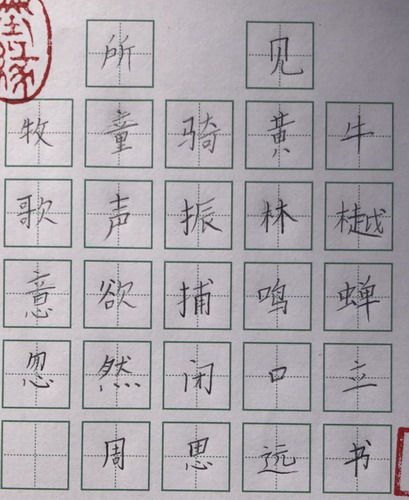 所见
牧童骑黄牛
歌声振林樾
意欲捕鸣蝉
忽然闭口立
周思远书